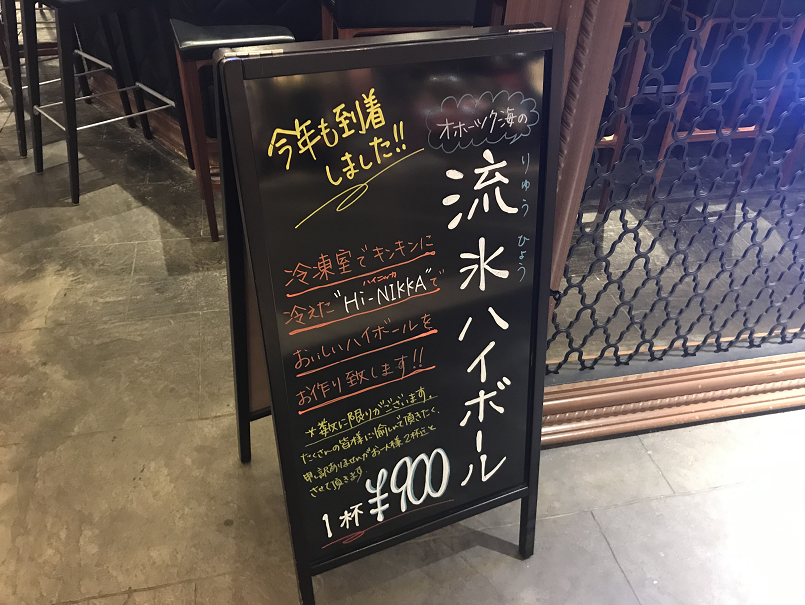 今年も到着
しました!!
オホーツク海の
りゅうひょう
流氷ハイボール
冷凍室でキンキンに
ハイニッカ
冷えた"Hi-NIKKA"で
おいしいハイボールを
お作り致します!!
※数に限りがございます。
たくさんの皆様に愉しんで頂きたく、
申し訳ありませんがお一人様2杯迄と
させて頂きます
1杯¥900